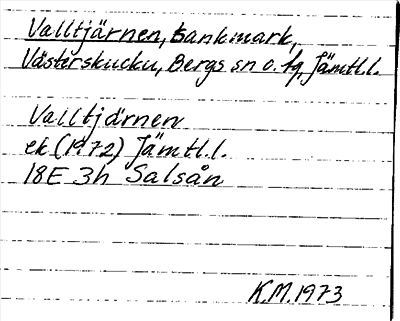 Valltjärnen, sankmark,
Västerskucku, Bergs sn o. tg, Jämtl.l.
Valltjärnen
ek (1972) Jämtl.l.
18E 3h Salsån
K.M. 1973